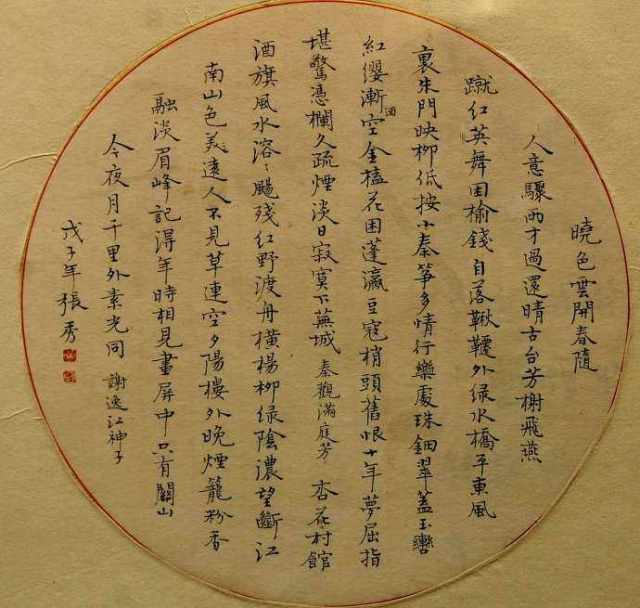 曉色雲開春隨
人意驟雨才過還晴古台芳榭飛燕
蹴紅英舞困榆錢自落鞦韆外綠水橋平東風
裏朱門映柳低按小秦箏多情行樂處珠鈿翠蓋玉轡
紅纓漸空金榼花困蓬瀛豆蔻梢頭舊恨十年夢屈指
堪驚憑欄久疏煙淡日寂寞下蕪城 秦觀滿庭芳 杏花村館
酒旗風水溶〻颺殘紅野渡舟橫楊柳綠陰濃望斷江
南山色美遠人不見草連空夕陽樓外晚煙籠粉香
融淡眉峰記得年時相見畫屏中只有關山
今夜月千里外素光同 謝逸江神子
戊子年 張秀